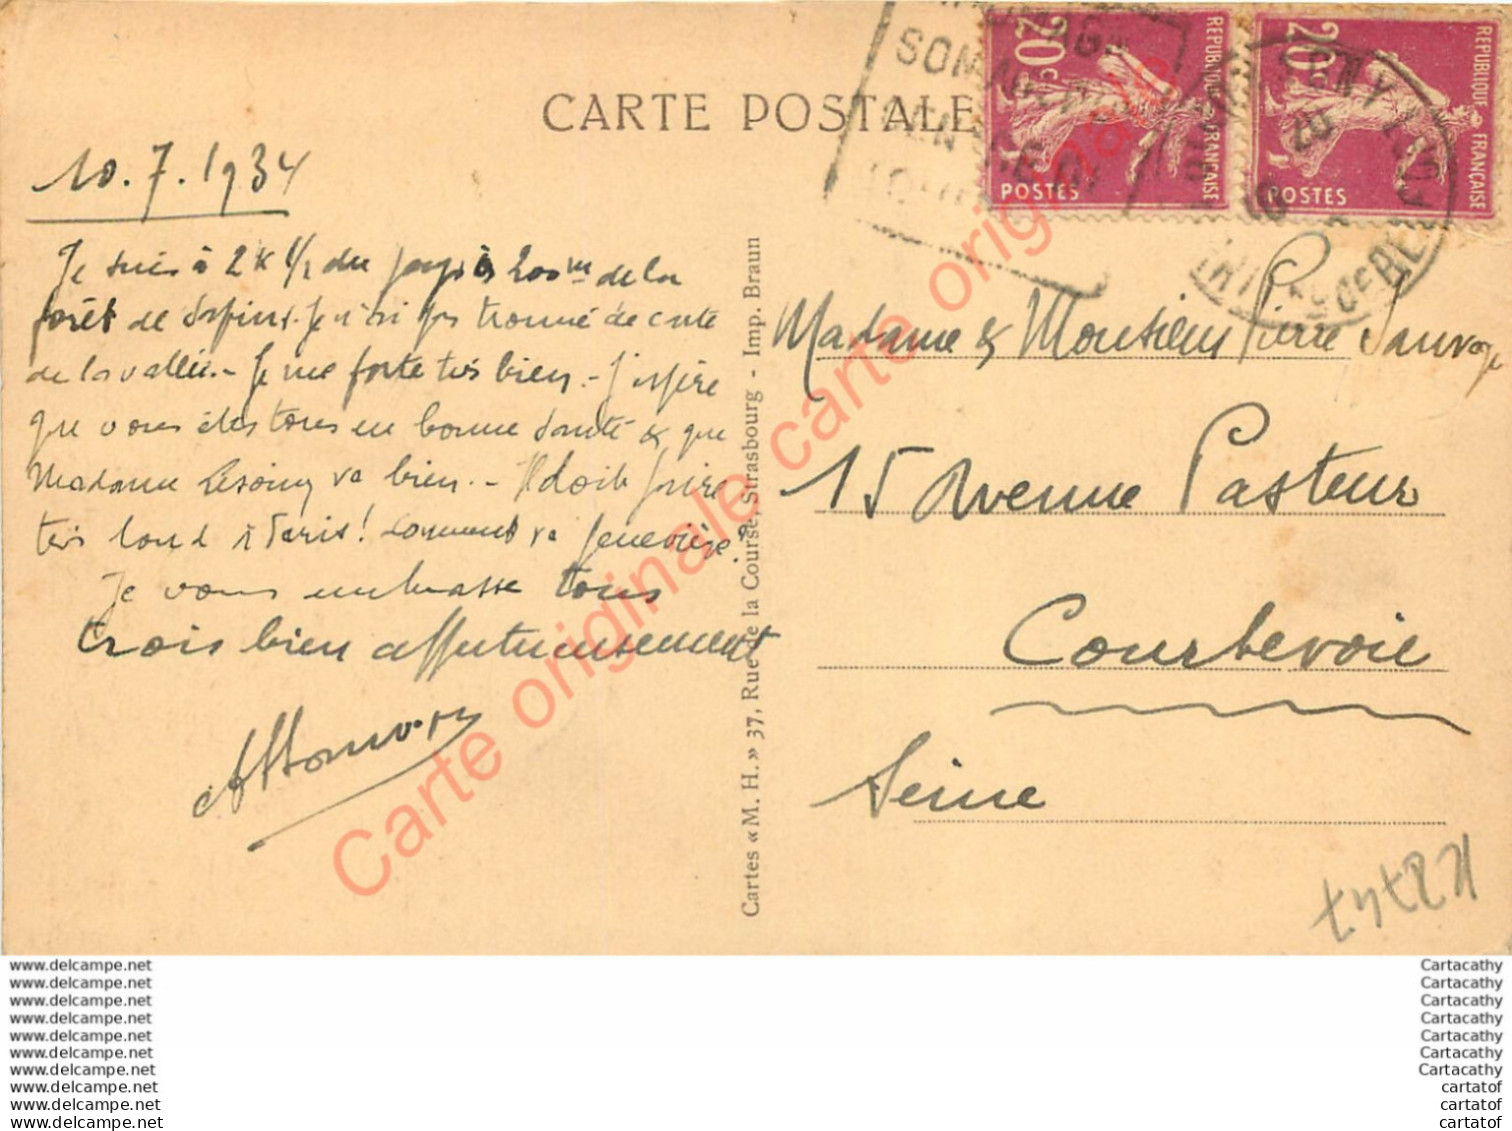 CARTE POSTALE
10.7.1934
Je suis à 2k 1/2 du pays à 200m de la
forêt de sapins. Je n'ai pas trouvé de carte
de la vallée. - Je me porte très bien. - J'espère
que vous êtes tous en bonne santé & que
Madame va bien. - Il doit faire
très lourd à Paris! Comment va Geneviève?
Je vous embrasse tous
trois bien affectueusement
Cartes « M. H. » 37, Rue de la Course, Strasbourg - Imp. Braun
20c
REPUBLIQUE FRANÇAISE
POSTES
20c
REPUBLIQUE FRANÇAISE
POSTES
Madame & Monsieur Pierre Sauvage
15 Avenue Pasteur
Courbevoie
Seine
Carte originale carte originale carte originale
www.delcampe.net
www.delcampe.net
www.delcampe.net
www.delcampe.net
www.delcampe.net
www.delcampe.net
www.delcampe.net
www.delcampe.net
www.delcampe.net
www.delcampe.net
Cartacathy
Cartacathy
Cartacathy
Cartacathy
Cartacathy
Cartacathy
Cartacathy
cartatof
cartatof
cartatof